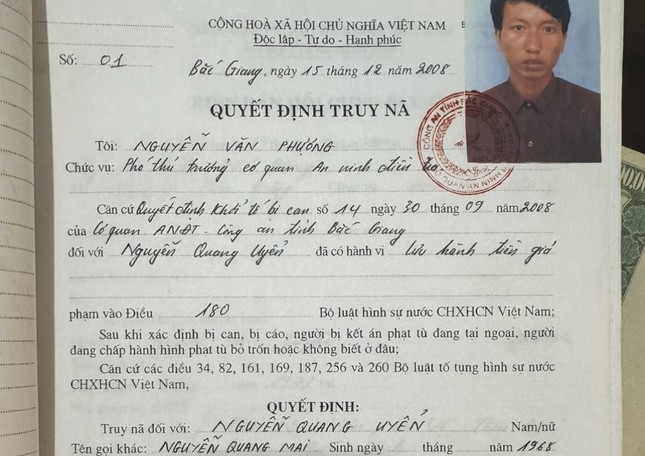 CỘNG HOÀ XÃ HỘI CHỦ NGHĨA VIỆT NAM
Độc lập - Tự do - Hạnh phúc
Số: 01
Bắc Giang, ngày 15 tháng 12 năm 2008
QUYẾT ĐỊNH TRUY NÃ
Tôi: NGUYỄN VĂN PHƯỢNG
Chức vụ: Phó thủ trưởng cơ quan An ninh điều
Căn cứ Quyết định Khởi tố bị can số 14 ngày 30 tháng 09 năm 2008
của Cơ quan ANĐT - Công an tỉnh Bắc Giang
đối với Nguyễn Quang Uyển đã có hành vi Lưu hành tiền giả
phạm vào Điều 180 Bộ luật hình sự nước CHXHCN Việt Nam;
Sau khi xác định bị can, bị cáo, người bị kết án phạt tù đang tại ngoại, người
đang chấp hành hình phạt tù bỏ trốn hoặc không biết ở đâu;
Căn cứ các điều 34, 82, 161, 169, 187, 256 và 260 Bộ luật tố tụng hình sự nước
CHXHCN Việt Nam,
QUYẾT ĐỊNH:
Truy nã đối với: NGUYỄN QUANG UYỂN Nam/nữ
Tên gọi khác: NGUYỄN QUANG MAI Sinh ngày tháng năm 1968